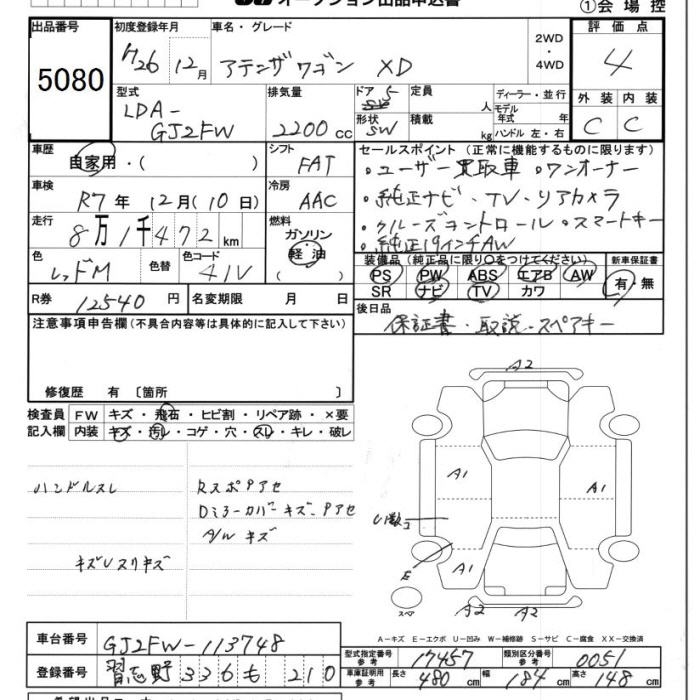 オークション出品申込書
①会場控
出品番号
5080
初度登録年月
H26年12月
車名・グレード
アテンザワゴン XD
2WD
・
4WD
評価点
4
型式
LDA-
GJ2FW
排気量
2200cc
ドア 5
形状 SW
定員 人
積載 kg
ディーラー・並行
モデル
年式 年
ハンドル 左・右
外装 内装
C C
車歴
自家用・( )
シフト
FAT
車検
R7年12月(10日)
冷房
AAC
走行
8万1千472km
燃料
ガソリン
軽油
色
レッドM
色替
色コード
41V
R券 12540円
名変期限 月 日
セールスポイント(正常に機能するものに限ります)
・ユーザー買取車 ・ワンオーナー
・純正ナビ・TV・リアカメラ
・クルーズコントロール ・スマートキー
・純正19インチAW
装備品(純正品に限り○をつけてください)
PS PW ABS エアB AW
SR ナビ TV カワ
新車保証書
有・無
後日品
保証書・取説・スペアキー
注意事項申告欄(不具合内容等は具体的に記入して下さい)
修復歴 有〔箇所 〕
検査員
記入欄
FW キズ・飛石・ヒビ割・リペア跡・×要
内装 キズ・汚レ・コゲ・穴・スレ・キレ・破レ
ハンドルスレ
キズUスリキズ
RスポPアセ
Dミラーカバーキズ・Pアセ
A/Wキズ
A2
A1
A1
U1数コ
E
A1
スペア
A2
A2
A-キズ E-エクボ U-凹み W-補修跡 S-サビ C-腐食 XX-交換済
車台番号
GJ2FW-113748
登録番号
習志野336も210
型式指定番号
参考
17457
類別区分番号
参考
0051
車庫証明用
参考
長さ 480cm
幅 184cm
高さ 148cm